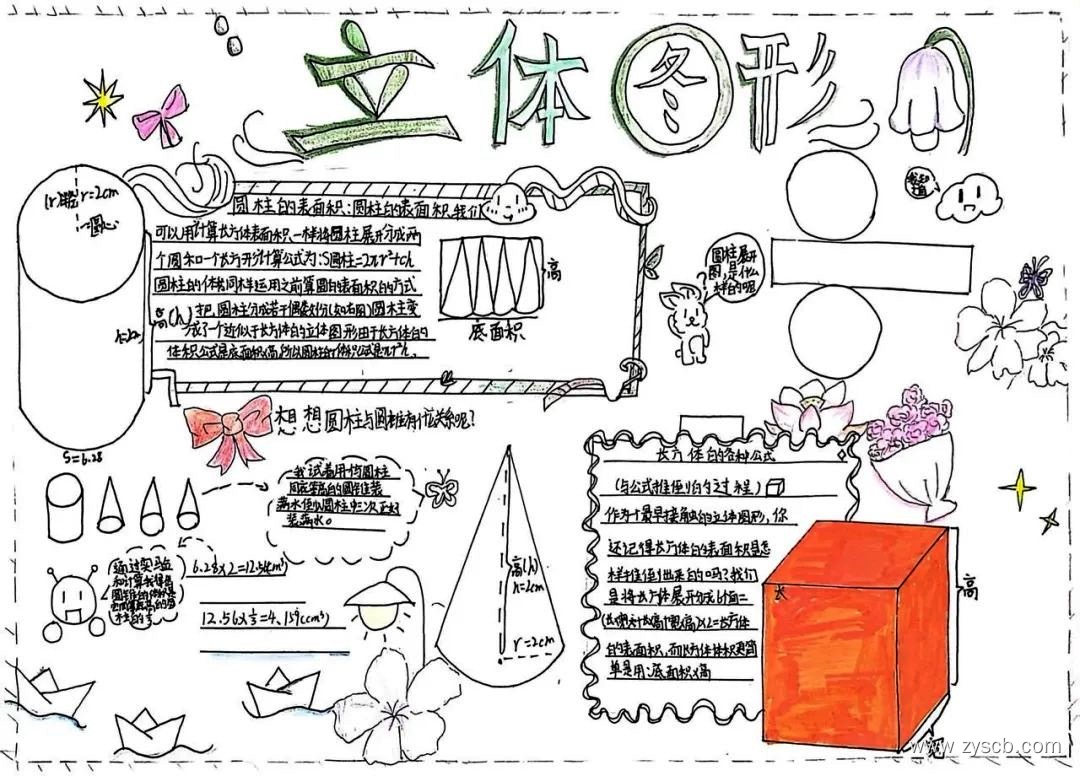 立体图形
(r)
r=2cm
圆心
圆柱的表面积:圆柱的表面积,我们
可以用计算长方体表面积一样将圆柱展开分成两
个圆和一个长方形,计算公式为:S圆柱=2πr²+ch
圆柱的体积同样运用之前算圆的表面积的方式
把圆柱分成若干偶数份(如右图)圆柱变
成了一个近似于长方体的立体图形由于长方体的
体积公式是底面积x高,所以圆柱的体积公式是πr²h.
高(h)
高
底面积
圆柱展开
图,是什么
样的呢
S=6.28
想想圆柱与圆锥有什么关系呢?
我试着用倚圆柱
同底等高的圆锥装
满水倒入圆柱中三次正好
装满水。
通过实验
和计算我得
6.28x2=12.56(cm³)
12.56x⅓=4.159(cm³)
高(h)
h=2cm
r=2cm
长方体的各种公式
(与公式推倒的过程)
作为一个最早接触的立体图形,你
还记得长方体的表面积是怎
样推倒出来的吗?我们
是将长方体展开的成6个面=
(长x宽+长x高+宽x高)x2=长方体
的表面积,而长方体体积更简
单是用:底面积x高
长
高
www.zyscb.com